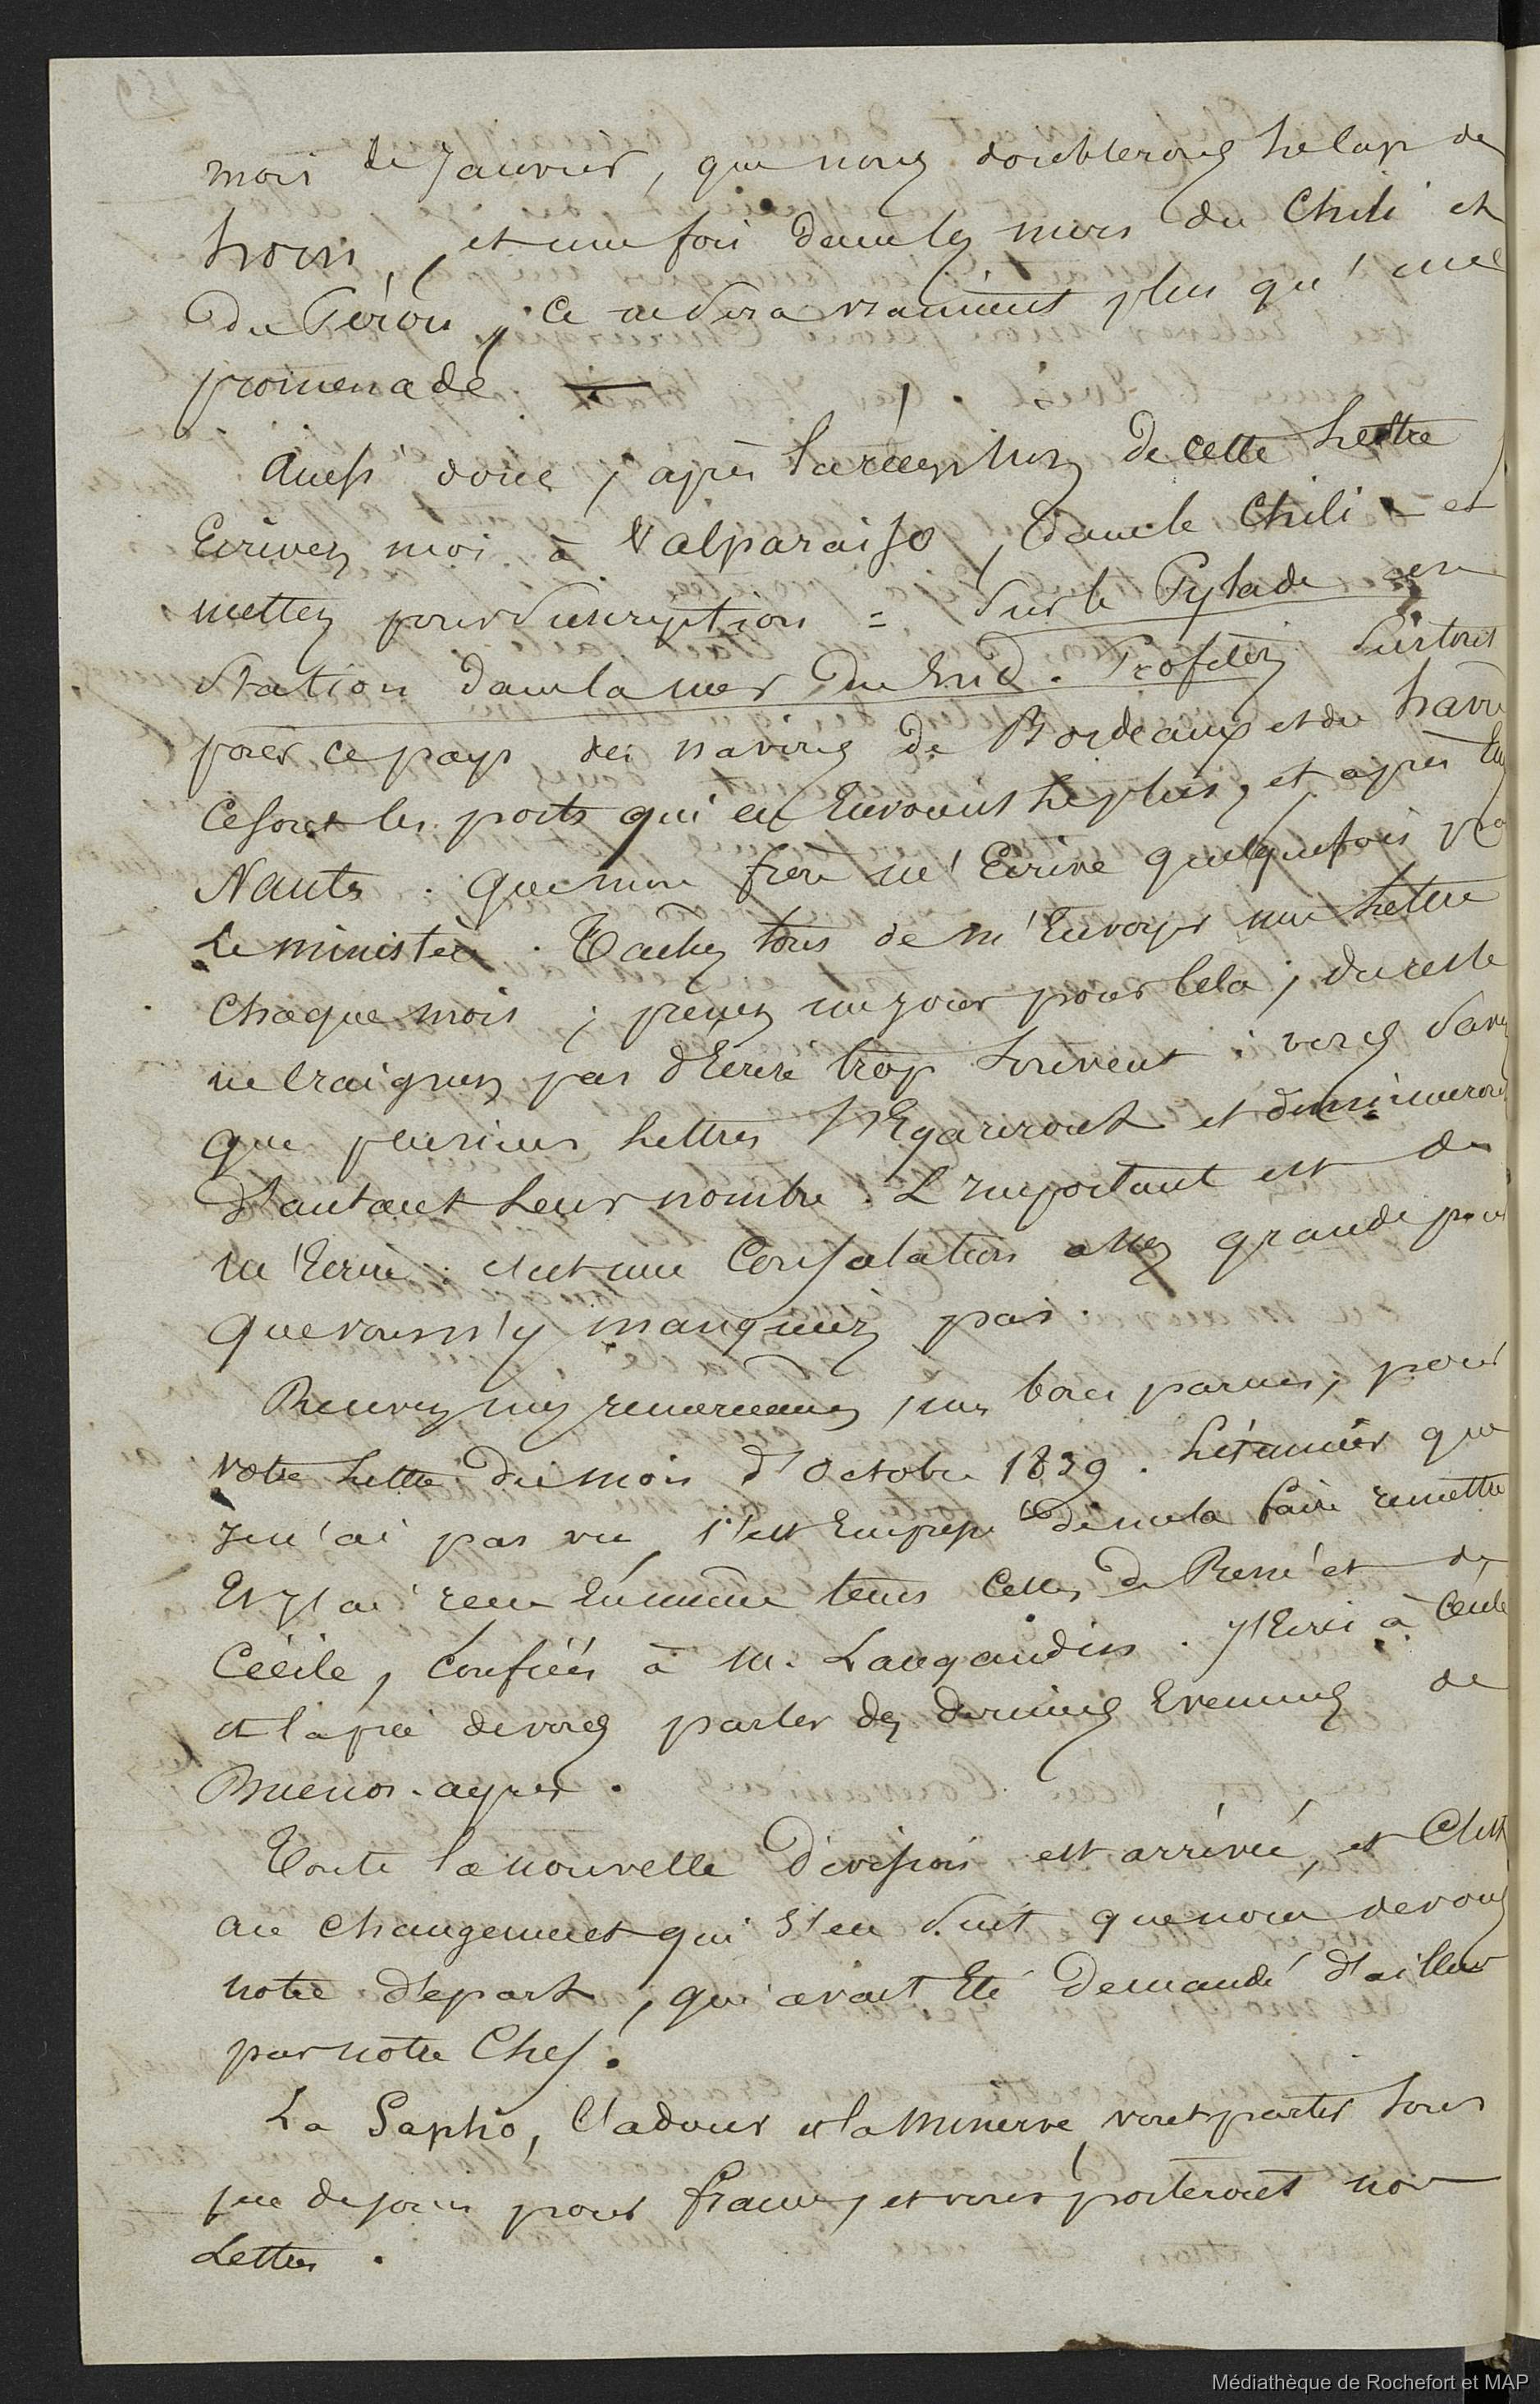 mois de Janvier, que nous doublerons le Cap de
horn, et une fois dans les mers du Chili et
du Pérou, ce ne sera vraiment plus qu'une
promenade. —
Aussi donc, après la réception de cette Lettre
Ecrivez moi à Valparaiso, dans le Chili - et
mettez pour suscription = sur le Pylade en
station dans la mer du Sud. Profitez surtout
pour ce pays des navires de Bordeaux et du havre
Ce sont les ports qui en Envoient le plus, et après Eux
Nantes. Que mon frère m'Ecrive quelquefois par
Le ministère. Tachez tous de m'Envoyer une Lettre
Chaque mois ; prenez un jour pour cela ; du reste
ne craignez pas d'Ecrire trop souvent : vous savez
que plusieurs Lettres s'Egareront et diminueront
d'autant Leur nombre. L'important est de
m'Ecrire : c'est une Consolation assez grande pour
que vous n'y manquiez pas.
Recevez mes remerciemens, mes bons parens, pour
votre Lettre du mois d'Octobre 1839. Létanneur que
je n'ai pas vu, s'est Empressé de me la faire remettre
Et j'ai reçu En même tems celles de René et de
Cécile, confiées à M. Langaudin. J'Ecris à Cécile
et la prie de vous parler des derniers Evenemens de
Buenos-ayres.
Toute la nouvelle Division est arrivée, et C'est
au changement qui s'en suit que nous devons
notre départ, qui avait Eté Demandé d'ailleurs
par notre Chef.
La Sapho, l'adour et la Minerve vont partir sous
peu de jours pour france, et vous porteront nos
Lettres.